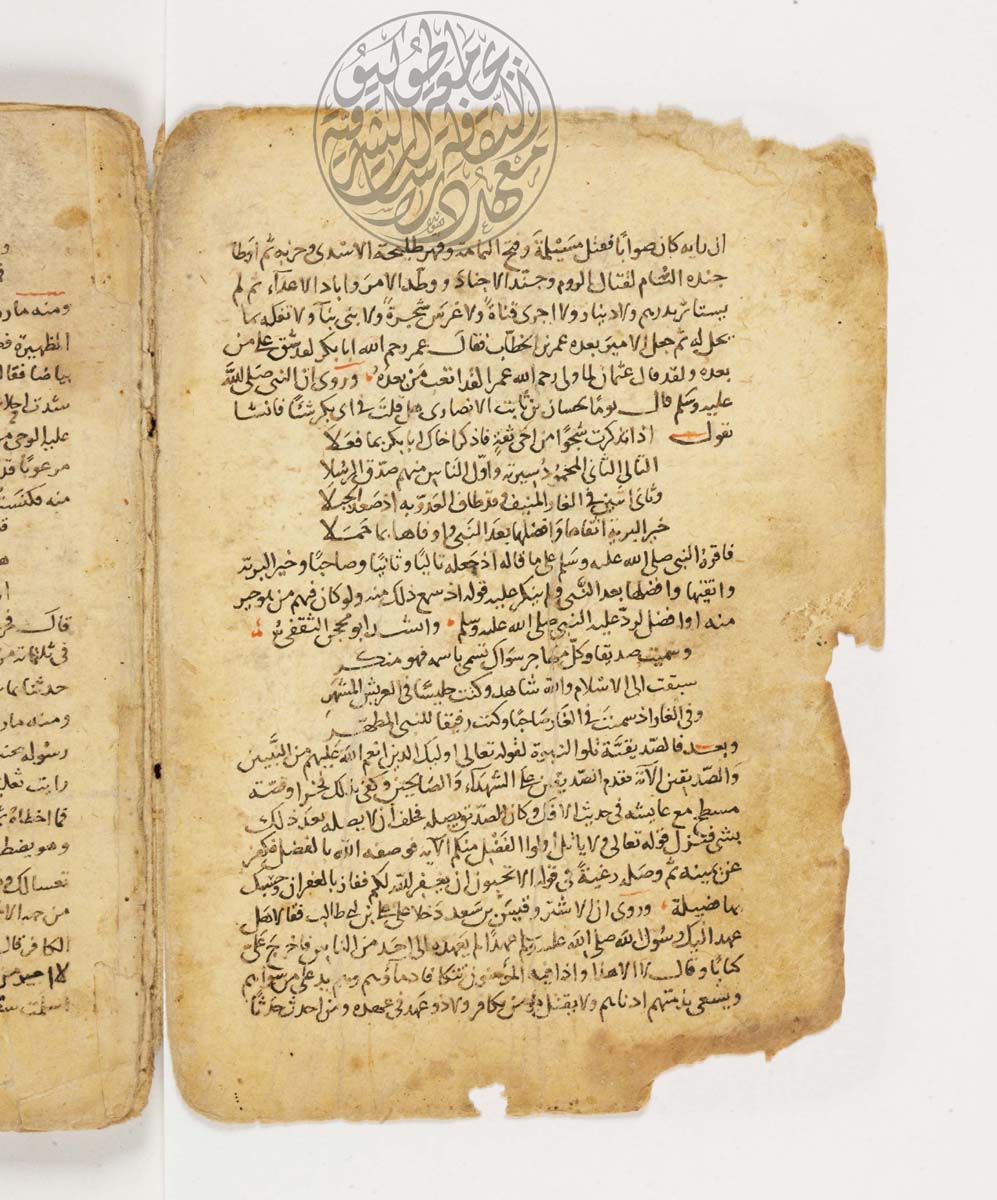 ان رايه كان صوابا فقتل مسيلمة وفتح اليمامة وقهر طليحة الاسدي وحزبه ثم اوطا
جنده الشام لقتال الروم وجند الاجناد ووطد الامر واباد الاعداء ثم لم
يستاثر بدرهم ولا دينار ولا اجرى قناة ولا غرس شجرة ولا بنى بناء ولا تفكه بما
يحل له ثم جعل الامير بعده عمر بن الخطاب فقال عمر رحم الله ابا بكر لقد شق على من
بعده ولقد قال عثمان لما ولي رحم الله عمر لقد اتعب من بعده وروي ان النبي صلى الله
عليه وسلم قال يوما لحسان بن ثابت الانصاري هل قلت في ابي بكر شيئا فانشا
يقول اذا تذكرت شجوا من اخي ثقة فاذكر اخاك ابا بكر بما فعلا
التالي الثاني المحمود سيرته واول الناس منهم صدق الرسلا
وثاني اثنين في الغار المنيف وقد طاف العدو به اذ صعد الجبلا
خير البرية اتقاها وافضلها بعد النبي واوفاها بما حملا
فاقره النبي صلى الله عليه وسلم على ما قاله اذ جعله تاليا وثانيا وصاحبا وخير البرية
واتقيها وافضلها بعد النبي ولم ينكر عليه قوله اذ سمع ذلك منه ولو كان فيهم من هو خير
منه او افضل لرد عليه النبي صلى الله عليه وسلم وانشد ابو محجن الثقفي
وسميت صديقا وكل مهاجر سواك تسمى باسمه فهو منكر
سبقت الى الاسلام والله شاهد وكنت جليسا في العريش المشهر
وفي الغار اذ سميت في الغار صاحبا وكنت رفيقا للنبي المطهر
وبعد فالصديقية تلوا النبوة لقوله تعالى اوليك الذين انعم الله عليهم من النبيين
والصديقين الآية فقدم الصديقين على الشهداء والصالحين وكفى بذلك فخرا وقصة
مسطح مع عايشه في حديث الافك وكان الصديق يصله فحلف ان لا يصله بعد ذلك
بشي فنزل قوله تعالى ولا ياتل اولوا الفضل منكم الآية فوصفه الله بالفضل فكفر
عن يمينه ثم وصله رغبة في قوله الا تحبون ان يغفر الله لكم ففاز بالغفران وحسبك
بها فضيلة وروي ان الاشتر وقيس بن سعد دخلا على علي بن ابي طالب فقالا هل
عهد اليك رسول الله صلى الله عليه وسلم عهدا لم يعهده الى احد من الناس فاخرج علي
كتابا وقال لا الا هذا واذا فيه المؤمنون تتكافا دماؤهم وهم يد على من سواهم
ويسعى بذمتهم ادناهم ولا يقتل مؤمن بكافر ولا ذو عهد في عهده ومن احدث حدثا